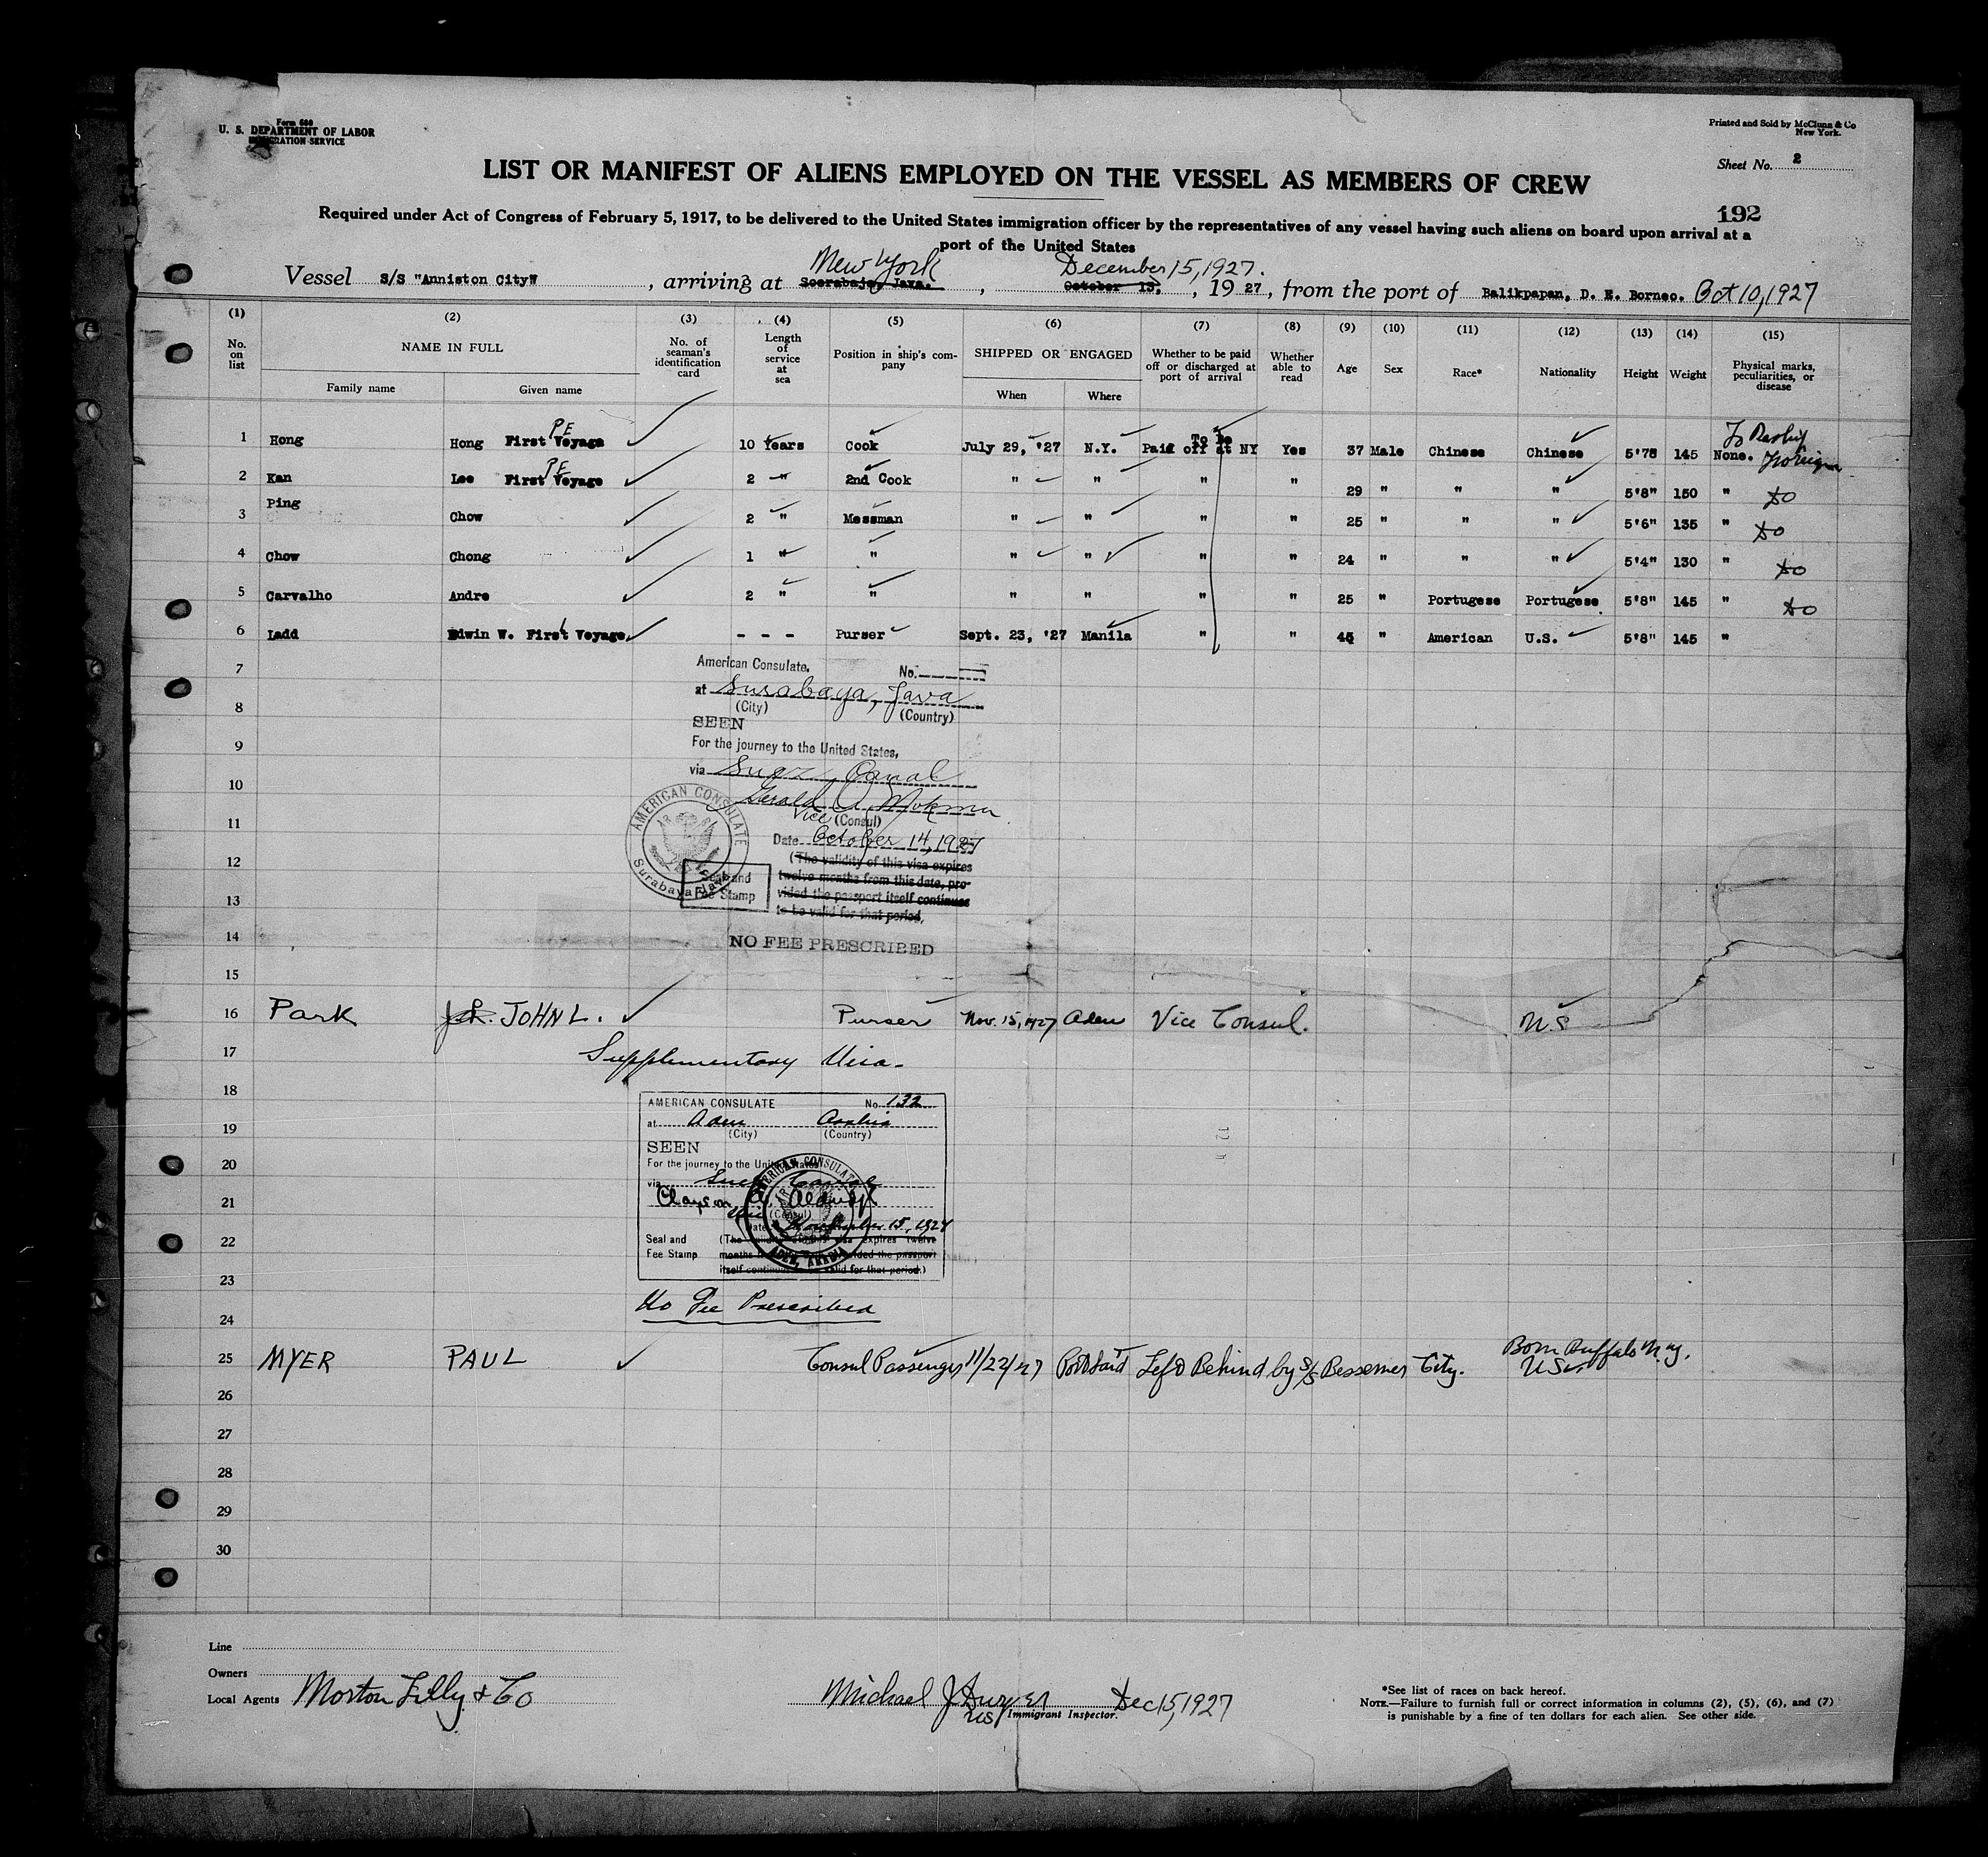 Form 680
U. S. DEPARTMENT OF LABOR
IMMIGRATION SERVICE
Printed and Sold by McClunn & Co
New York.
Sheet No. 2
LIST OR MANIFEST OF ALIENS EMPLOYED ON THE VESSEL AS MEMBERS OF CREW
192
Required under Act of Congress of February 5, 1917, to be delivered to the United States immigration officer by the representatives of any vessel having such aliens on board upon arrival at a
port of the United States
New York December 15, 1927.
Vessel S/S "Anniston City" , arriving at Soerabaja, Java. , October 13, , 19 27 , from the port of Balikpapan, D. E. Borneo. Oct 10, 1927
(1) (2) (3) (4) (5) (6) (7) (8) (9) (10) (11) (12) (13) (14) (15)
No. on list NAME IN FULL No. of seaman's identification card Length of service at sea Position in ship's company SHIPPED OR ENGAGED Whether to be paid off or discharged at port of arrival Whether able to read Age Sex Race* Nationality Height Weight Physical marks, peculiarities, or disease
Family name Given name When Where
1 Hong Hong First Voyage PE 10 Years Cook July 29, '27 N.Y. To be Paid off at NY Yes 37 Male Chinese Chinese 5'7½ 145 None. To Reship Foreign
2 Kan Lee First Voyage PE 2 " 2nd Cook " " " " 29 " " " 5'8" 150 " do
3 Ping Chow 2 " Messman " " " " 25 " " " 5'6" 135 " do
4 Chow Chong 1 " " " " " " 24 " " " 5'4" 130 " do
5 Carvalho Andre 2 " " " " " " 25 " Portugese Portugese 5'8" 145 " do
6 Ladd Edwin W. First Voyage - - - Purser Sept. 23, '27 Manila " " 45 " American U.S. 5'8" 145 "
7
American Consulate, No.
at Surabaya, Java
8
(City) (Country)
SEEN
9
For the journey to the United States,
via Suez Canal
10
Gerald A. Mokma
Vice (Consul)
11
Date October 14, 1927
12
(The validity of this visa expires
twelve months from this date, pro-
vided the passport itself continues
to be valid for that period.
AMERICAN CONSULATE
Surabaya, Java
Seal and
Fee Stamp
13
14
NO FEE PRESCRIBED
15
16 Park JOHN L. Purser Nov. 15, 1927 Aden Vice Consul. U.S
17
Supplementary Visa.
18
AMERICAN CONSULATE No. 132
19
at Aden Arabia
(City) (Country)
SEEN
20
For the journey to the United States
via Suez Canal
21
Vice (Consul)
Date November 15, 1927
22
Seal and
Fee Stamp
(The validity of this visa expires twelve
months provided the passport
itself continues to be valid for that period.)
AMERICAN CONSULATE
ADEN, ARABIA
23
No Fee Prescribed
24
25 MYER PAUL Consul Passenger 11/22/27 Port Said Left Behind by S/S Bessemer City. Born Buffalo N.Y. US
26
27
28
29
30
Line
Owners
Local Agents Morton Lilly & Co
Michael J
US Immigrant Inspector. Dec 15, 1927
*See list of races on back hereof.
NOTE.—Failure to furnish full or correct information in columns (2), (5), (6), and (7)
is punishable by a fine of ten dollars for each alien. See other side.